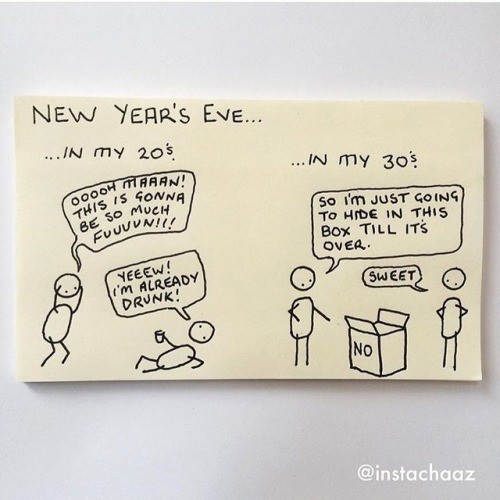 NEW YEAR'S EVE...
...IN MY 20'S.
OOOOH MAAAN!
THIS IS GONNA
BE SO MUCH
FUUUUN!!!
YEEEW!
I'M ALREADY
DRUNK!
...IN MY 30'S.
SO I'M JUST GOING
TO HIDE IN THIS
BOX TILL IT'S
OVER.
SWEET.
NO
@instachaaz